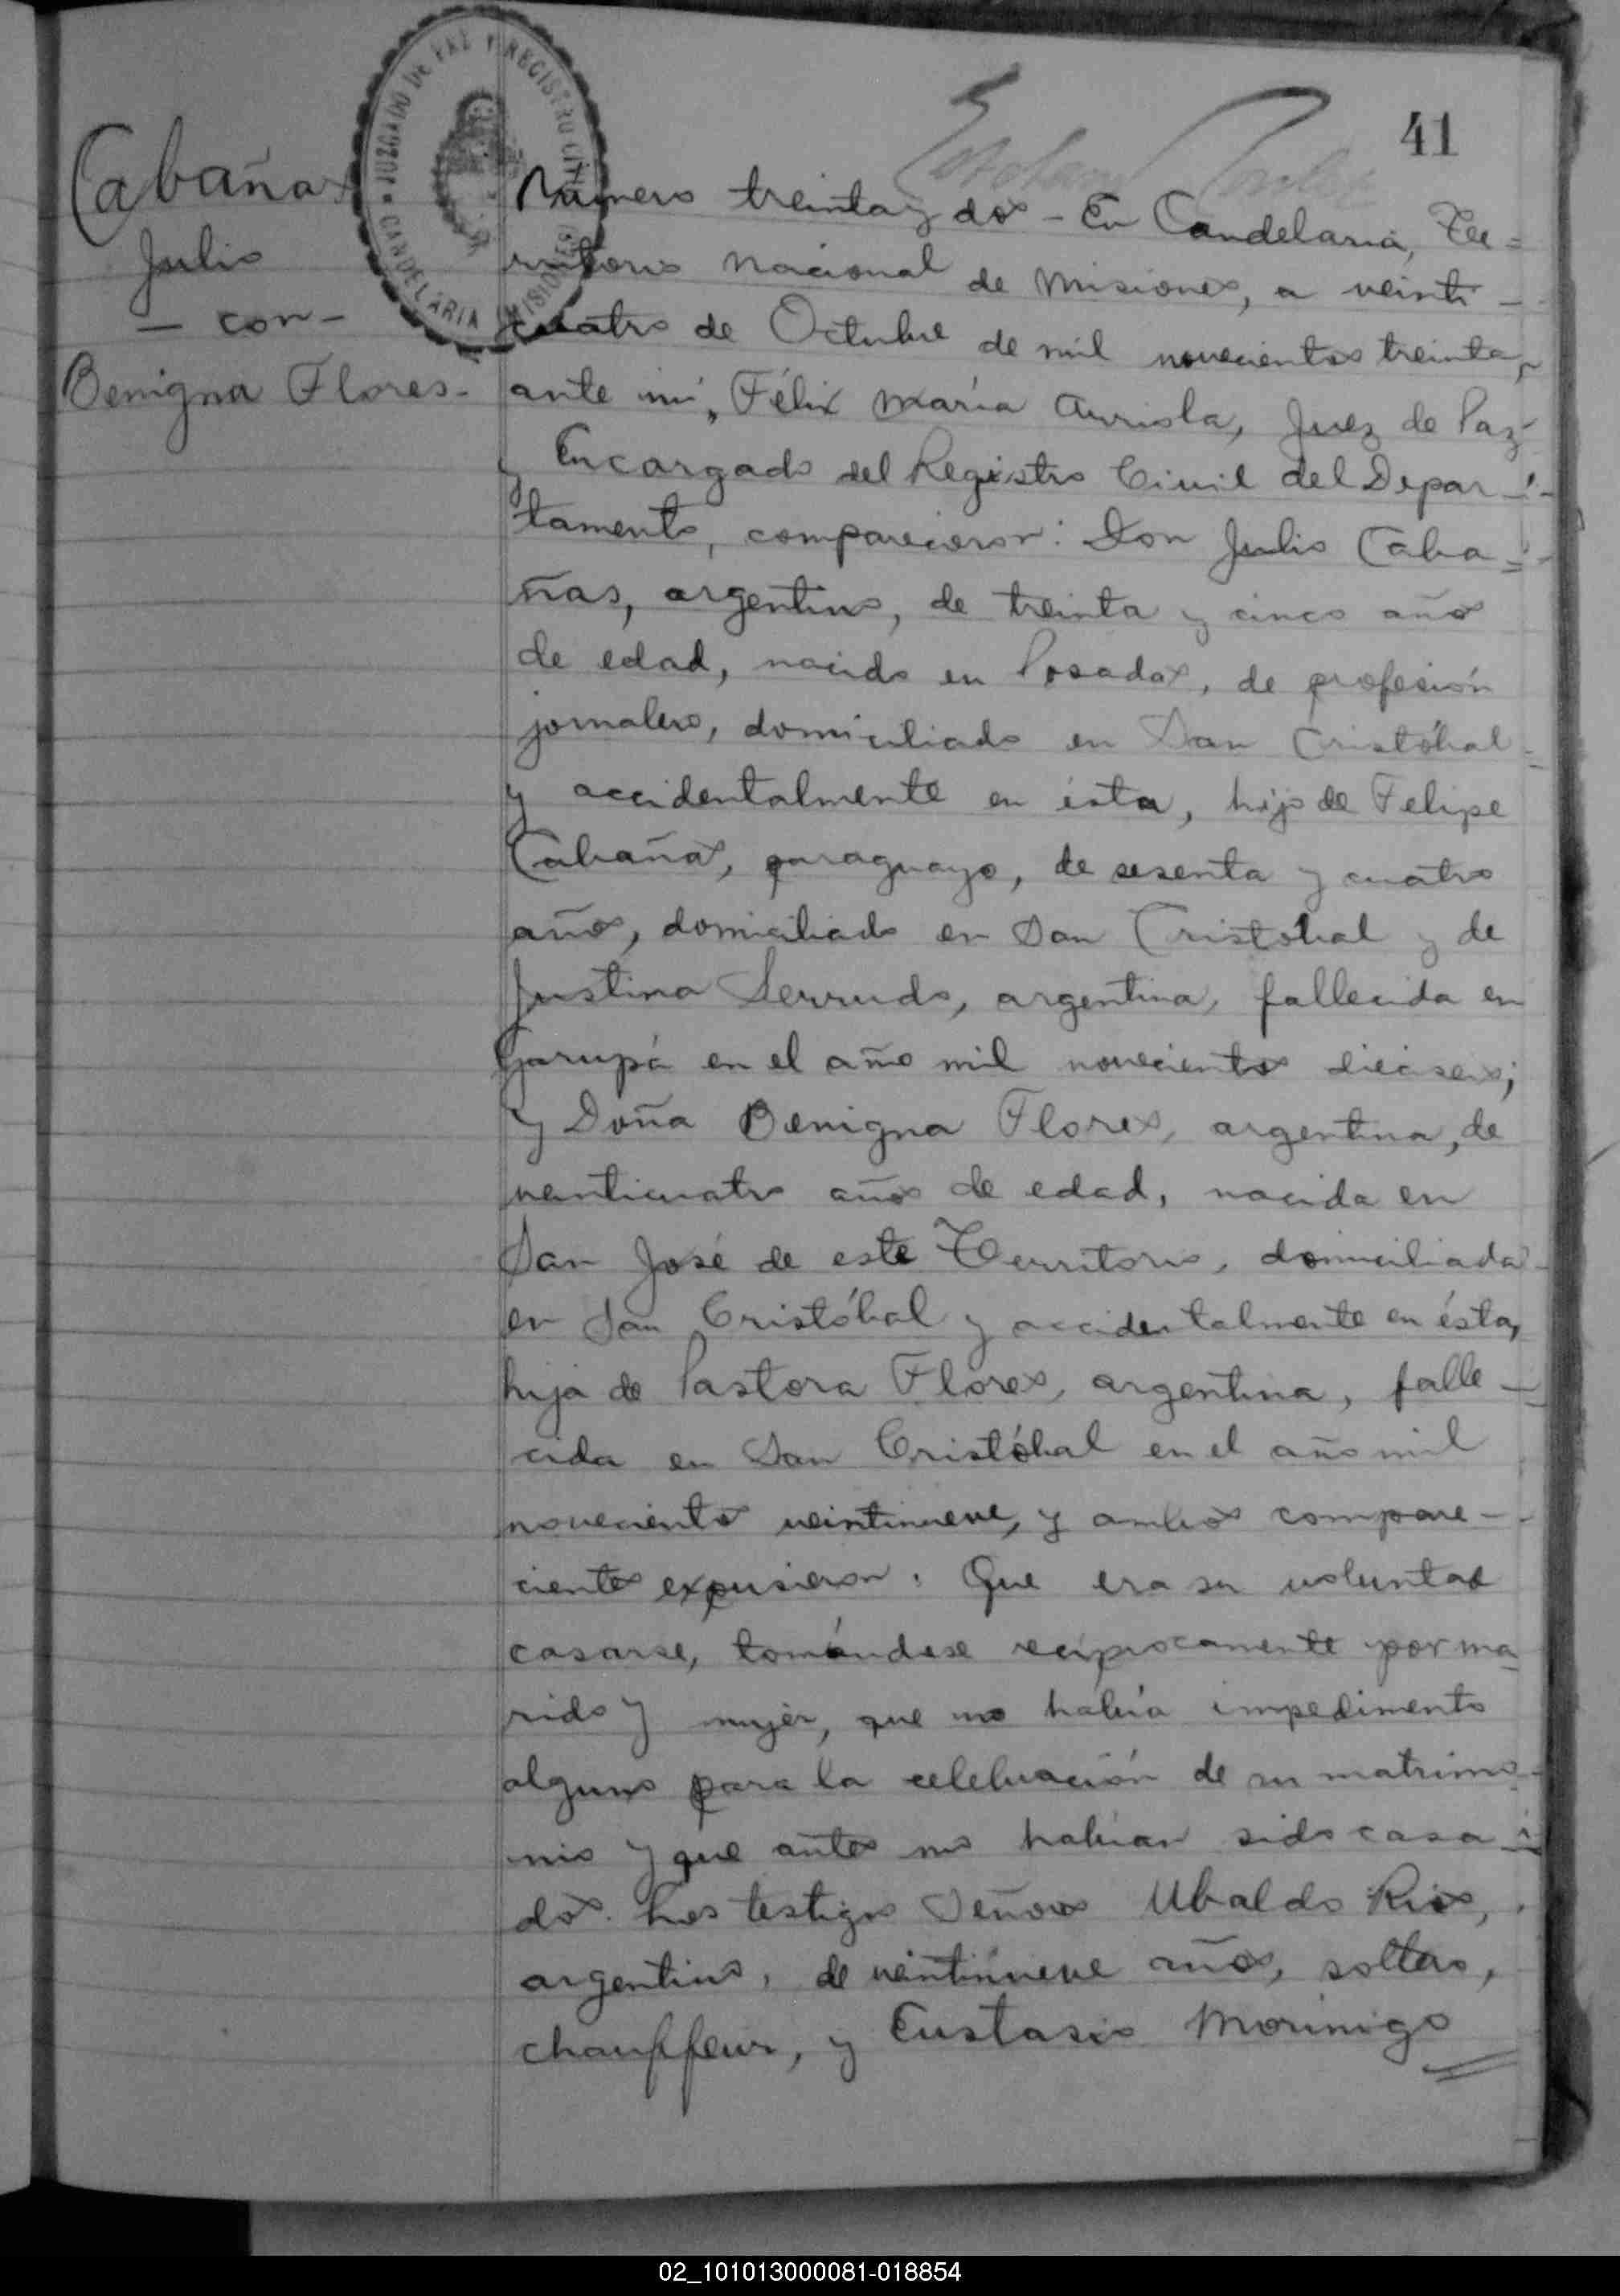 41
JUZGADO DE PAZ Y REGISTRO CIVIL
CANDELARIA (MISIONES)
Cabañas
Julio
— con —
Benigna Flores -
Número treinta y dos - En Candelaria, Te=
rritorio Nacional de Misiones, a veinti-
cuatro de Octubre de mil novecientos treinta,
ante mí, Félix María Arriola, Juez de Paz
y Encargado del Registro Civil del Depar-
tamento, comparecieron: Don Julio Caba=
ñas, argentino, de treinta y cinco años
de edad, nacido en Posadas, de profesión
jornalero, domiciliado en San Cristóbal
y accidentalmente en ésta, hijo de Felipe
Cabañas, paraguayo, de sesenta y cuatro
años, domiciliado en San Cristobal y de
Justina Serrudo, argentina, fallecida en
Garupá en el año mil novecientos dieciseis;
y Doña Benigna Flores, argentina, de
venticuatro años de edad, nacida en
San José de este Territorio, domiciliada
en San Cristóbal y accidentalmente en ésta,
hija de Pastora Flores, argentina, falle-
cida en San Cristóbal en el año mil
novecientos veintinueve, y ambos compare-
cientes expusieron: Que era su voluntad
casarse, tomándose recíprocamente por ma
rido y mujer, que no había impedimento
alguno para la celebración de su matrimo-
nio y que antes no habían sido casa=
dos. Los testigos Señores Ubaldo Rios,
argentino, de veintinueve años, soltero,
chauffeur, y Eustasio Morinigo
02_101013000081-018854